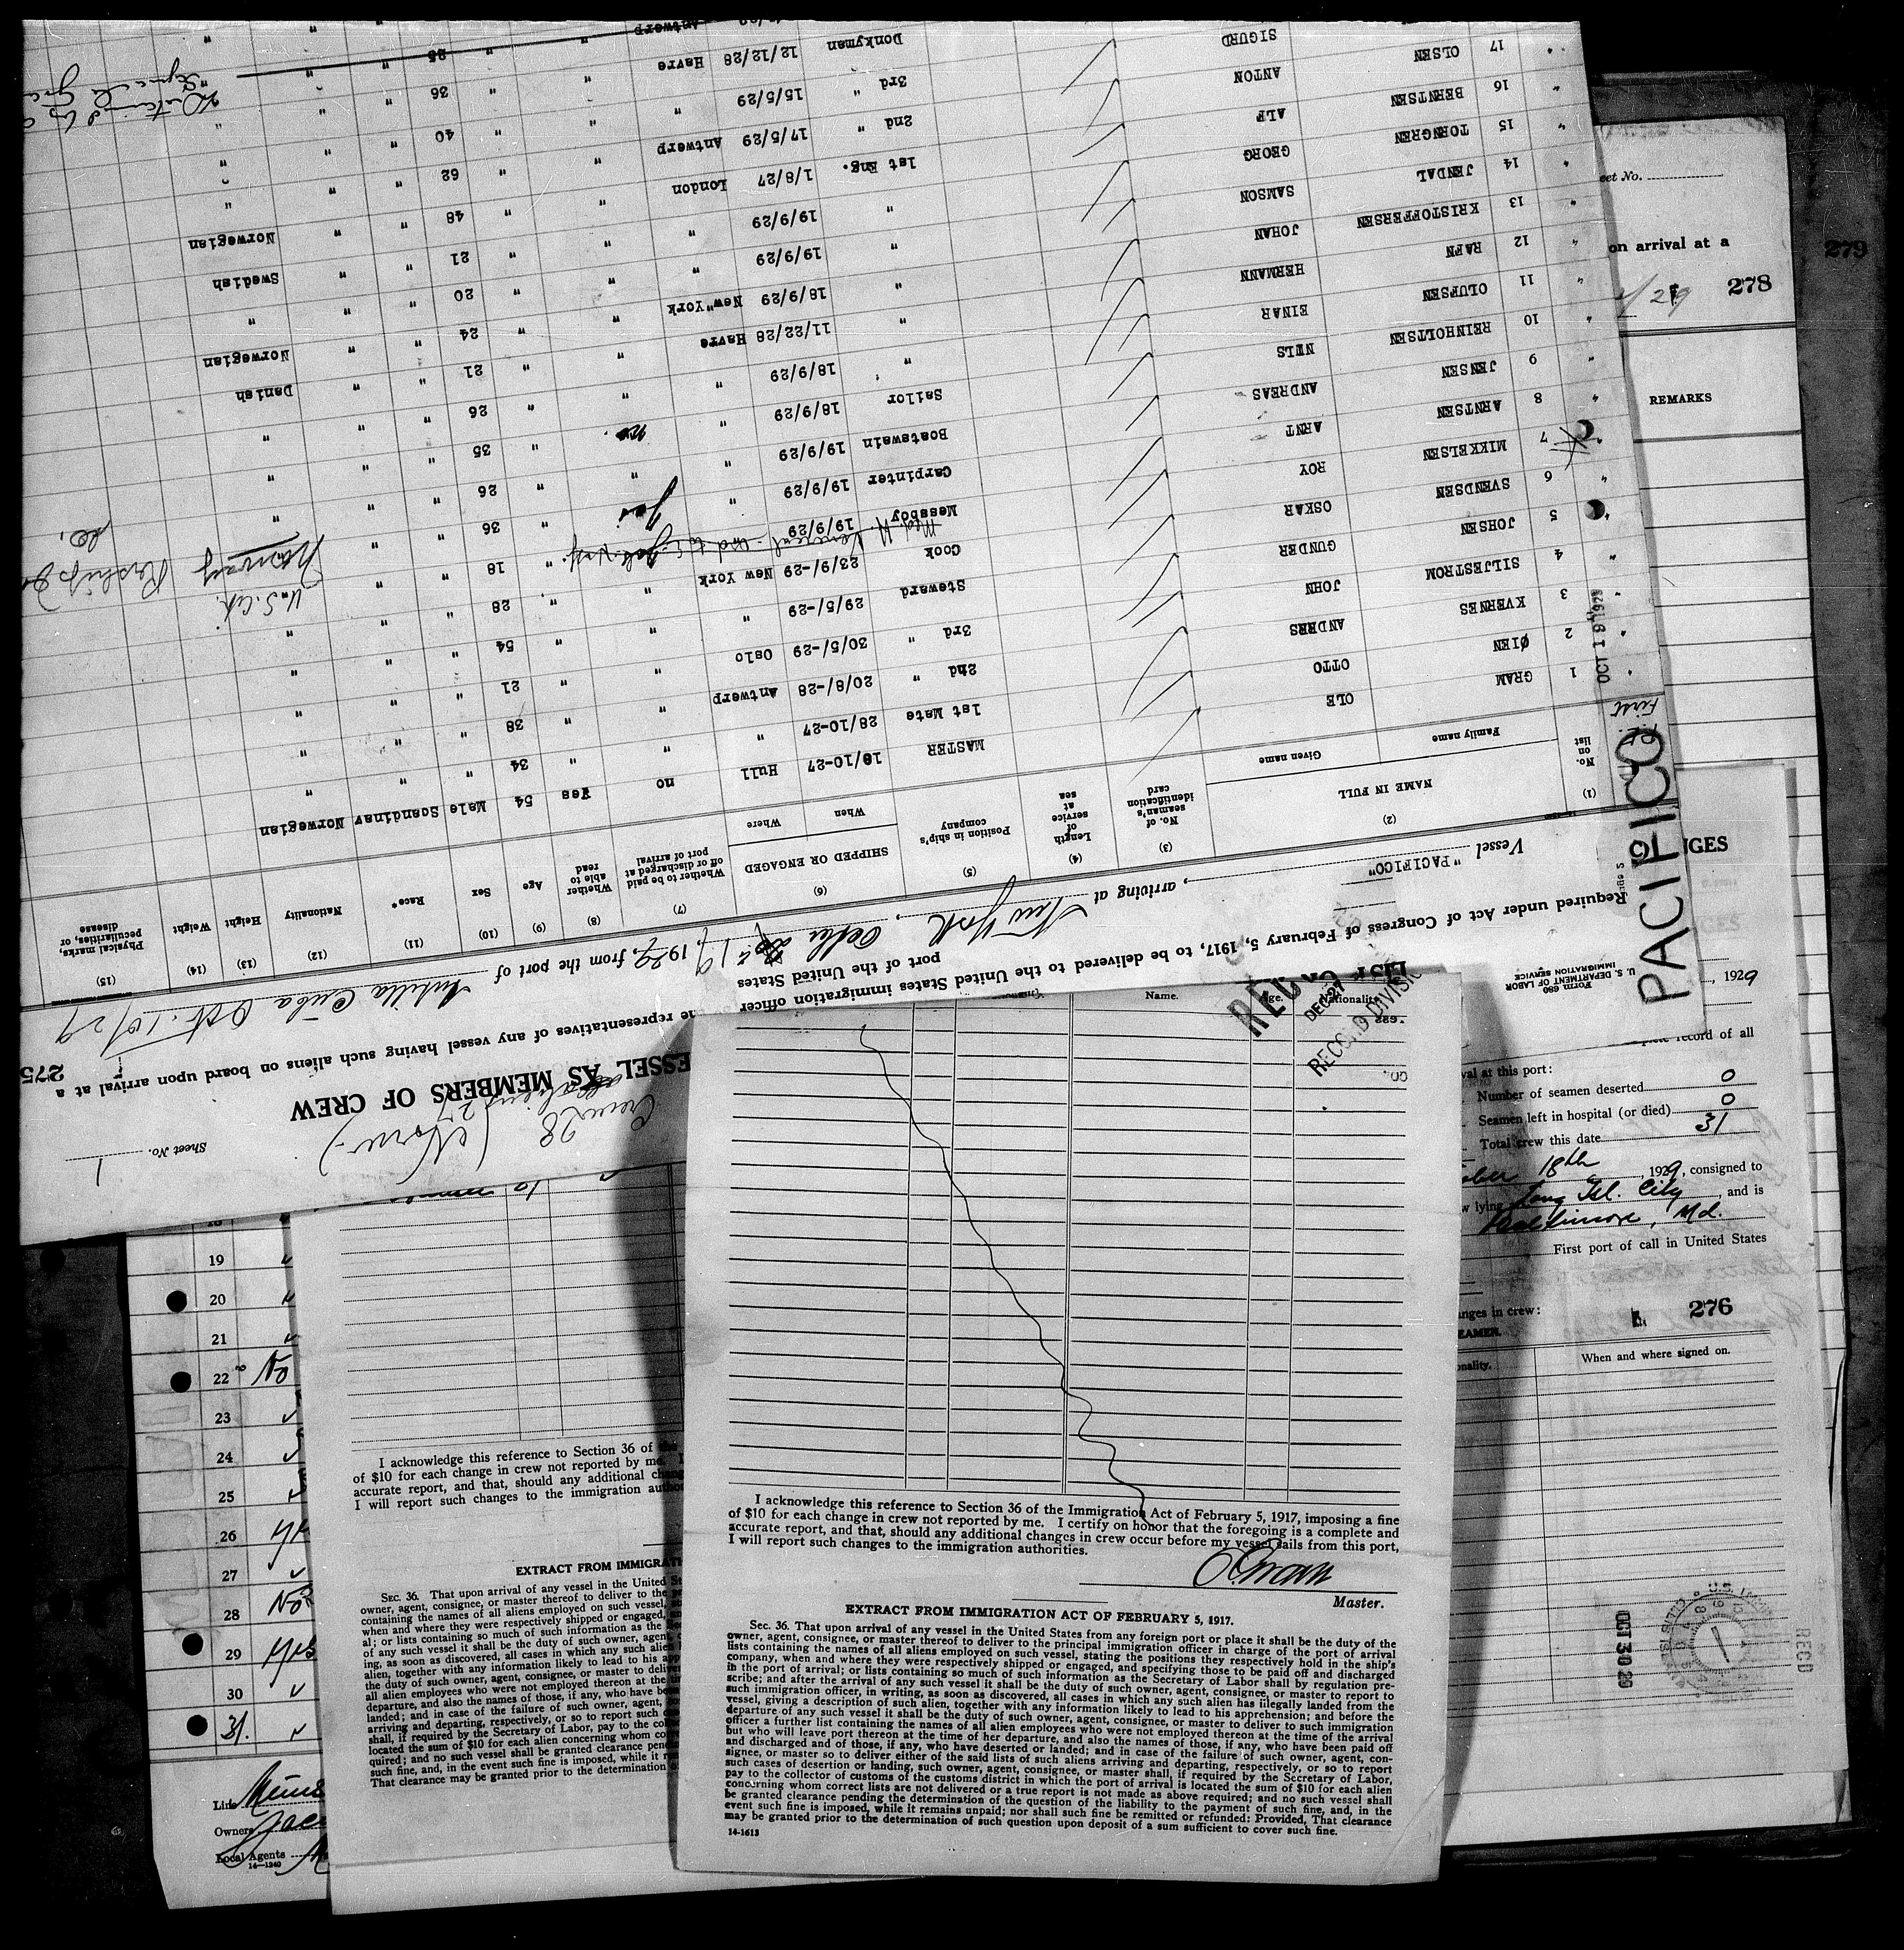 Sheet No. 1
Crew 28
(Norw.)
ESSEL AS MEMBERS OF CREW
275
Required under Act of Congress of February 5, 1917, to be delivered to the United States immigration officer
the representatives of any vessel having such aliens on board upon arrival at a
port of the United States
Form 680
U. S. DEPARTMENT OF LABOR
IMMIGRATION SERVICE
Vessel "PACIFICO", arriving at New York, 19, 1929, from the port of Antilla Cuba Oct. 10/29
(1) No. on list
(2) NAME IN FULL
Family name Given name
(3) No. of seaman's identification card
(4) Length of service at sea
(5) Position in ship's company
(6) SHIPPED OR ENGAGED
When Where
(7) Whether to be paid off or discharged at port of arrival
(8) Whether able to read
(9) Age
(10) Sex
(11) Race*
(12) Nationality
(13) Height
(14) Weight
(15) Physical marks, peculiarities, or disease
1 GRAM OLE MASTER 18/10-27 Hull no Yes 54 Male Scandinav Norwegian
2 ØIEN OTTO 1st Mate 28/10-27 " " " 34 " " "
3 KVERNES ANDERS 2nd " 20/8/-28 Antwerp " " 38 " " "
4 SILJESTROM JOHN 3rd " 30/5/-29 Oslo " " 21 " " "
5 JOHSEN GUNDER Steward 29/5/-29 " " " 54 " " "
6 SVENDSEN OSKAR Cook 23/9/-29 New York " " 28 " " " U.S. Cit.
7 MIKKELSEN ROY Messboy 19/9/29 18 " " Norway
8 ARNTSEN ARNT Carpinter 19/9/29 " yes " 36 " " "
9 JENSEN ANDREAS Boatswain 19/9/29 " " " 26 " " "
10 REINHOLTSEN NILS Sailor 18/9/29 " no. " 35 " " "
11 OLUFSEN EINAR " 18/9/29 " " " 26 " " "
12 RAFN HERMANN " 11/22/28 Havre " " 21 " " Danish
13 KRISTOFFERSEN JOHAN " 18/9/29 New York " " 24 " " Norwegian
14 JENDAL SAMSON " 19/9/29 " " " 20 " " "
15 TORNGREN GEORG " 19/9/29 " " " 21 " " Swedish
16 BERNTSEN ALF 1st Eng. 1/8/27 London " " 48 " " Norwegian
17 OLSEN ANTON 2nd " 17/5/29 Antwerp " " 62 " " "
SIGURD 3rd " 15/5/29 " " " 40 " " "
Donkyman 12/12/28 Havre " " 36 " " "
Antwerp " " 25 " " "
OCT 19 1929
First
PACIFICO
eet No.
on arrival at a
279
278
REMARKS
NGES
, 1929
record of all
val at this port:
Number of seamen deserted 0
Seamen left in hospital (or died) 0
Total crew this date 31
ober 18th, 1929, consigned to
w lying Long Isl. City, and is
Baltimore, Md.
First port of call in United States
anges in crew:
276
EAMER.
onality. When and where signed on.
OCT 30 29
RECD
Name. Age. Nationality
DEC 27
RECORD DIVISIO
19
20
21
22 No
23
24
25
26 Yes
27
28 No
29 Yes
30
31.
Line
Owners
Local Agents
14-1240
I acknowledge this reference to Section 36 of
of $10 for each change in crew not reported by me.
accurate report, and that, should any additional chang
I will report such changes to the immigration author
EXTRACT FROM IMMIGRATI
SEC. 36. That upon arrival of any vessel in the United S
owner, agent, consignee, or master thereof to deliver to the
containing the names of all aliens employed on such vessel,
when and where they were respectively shipped or engaged,
al; or lists containing so much of such information as the
of any such vessel it shall be the duty of such owner, agent,
ing, as soon as discovered, all cases in which any such alien
alien, together with any information likely to lead to his app
the duty of such owner, agent, consignee, or master to deliver
all alien employees who were not employed thereon at the
departure, and also the names of those, if any, who have been
landed; and in case of the failure of such owner, agent,
arriving and departing, respectively, or so to report such
shall, if required by the Secretary of Labor, pay to the col
located the sum of $10 for each alien concerning whom cor
quired; and no such vessel shall be granted clearance pen
such fine, and, in the event such fine is imposed, while it
That clearance may be granted prior to the determination
I acknowledge this reference to Section 36 of the Immigration Act of February 5, 1917, imposing a fine
of $10 for each change in crew not reported by me. I certify on honor that the foregoing is a complete and
accurate report, and that, should any additional changes in crew occur before my vessel sails from this port,
I will report such changes to the immigration authorities.
O Gram
Master.
EXTRACT FROM IMMIGRATION ACT OF FEBRUARY 5, 1917.
Sec. 36. That upon arrival of any vessel in the United States from any foreign port or place it shall be the duty of the
owner, agent, consignee, or master thereof to deliver to the principal immigration officer in charge of the port of arrival
lists containing the names of all aliens employed on such vessel, stating the positions they respectively hold in the ship's
company, when and where they were respectively shipped or engaged, and specifying those to be paid off and discharged
in the port of arrival; or lists containing so much of such information as the Secretary of Labor shall by regulation pre-
scribe; and after the arrival of any such vessel it shall be the duty of such owner, agent, consignee, or master to report to
such immigration officer, in writing, as soon as discovered, all cases in which any such alien has illegally landed from the
vessel, giving a description of such alien, together with any information likely to lead to his apprehension; and before the
departure of any such vessel it shall be the duty of such owner, agent, consignee, or master to deliver to such immigration
officer a further list containing the names of all alien employees who were not employed thereon at the time of the arrival
but who will leave port thereon at the time of her departure, and also the names of those, if any, who have been paid off
and discharged and of those, if any, who have deserted or landed; and in case of the failure of such owner, agent, con-
signee, or master so to deliver either of the said lists of such aliens arriving and departing, respectively, or so to report
such cases of desertion or landing, such owner, agent, consignee, or master shall, if required by the Secretary of Labor,
pay to the collector of customs of the customs district in which the port of arrival is located the sum of $10 for each alien
concerning whom correct lists are not delivered or a true report is not made as above required; and no such vessel shall
be granted clearance pending the determination of the question of the liability to the payment of such fine, and, in the
event such fine is imposed, while it remains unpaid; nor shall such fine be remitted or refunded: Provided, That clearance
may be granted prior to the determination of such question upon deposit of a sum sufficient to cover such fine.
14-1613